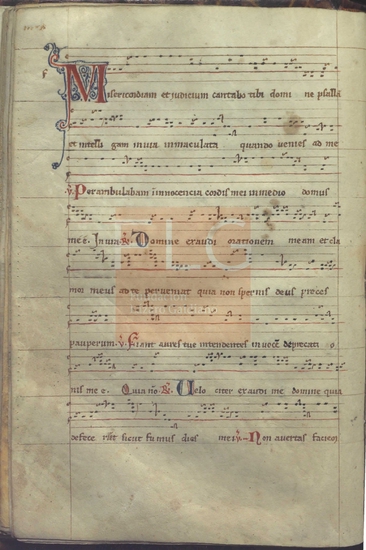 Misericordiam et iudicium cantabo tibi domi ne psallā
et intelli gam in uia inmaculata quando uenies ad me
℣. Perambulabam in innocencia cordis mei in medio domus
mee. In uia. ℟. Domine exaudi orationem meam et cla
mor meus ad te perueniat quia non spernis deus preces
pauperum. ℣. Fiant aures tue intendentes in uocē deprecati o
nis me e. Quia nō. ℟. Uelo citer exaudi me domine quia
defece rūt sicut fumus dies mei. ℣. Non auertas faciem